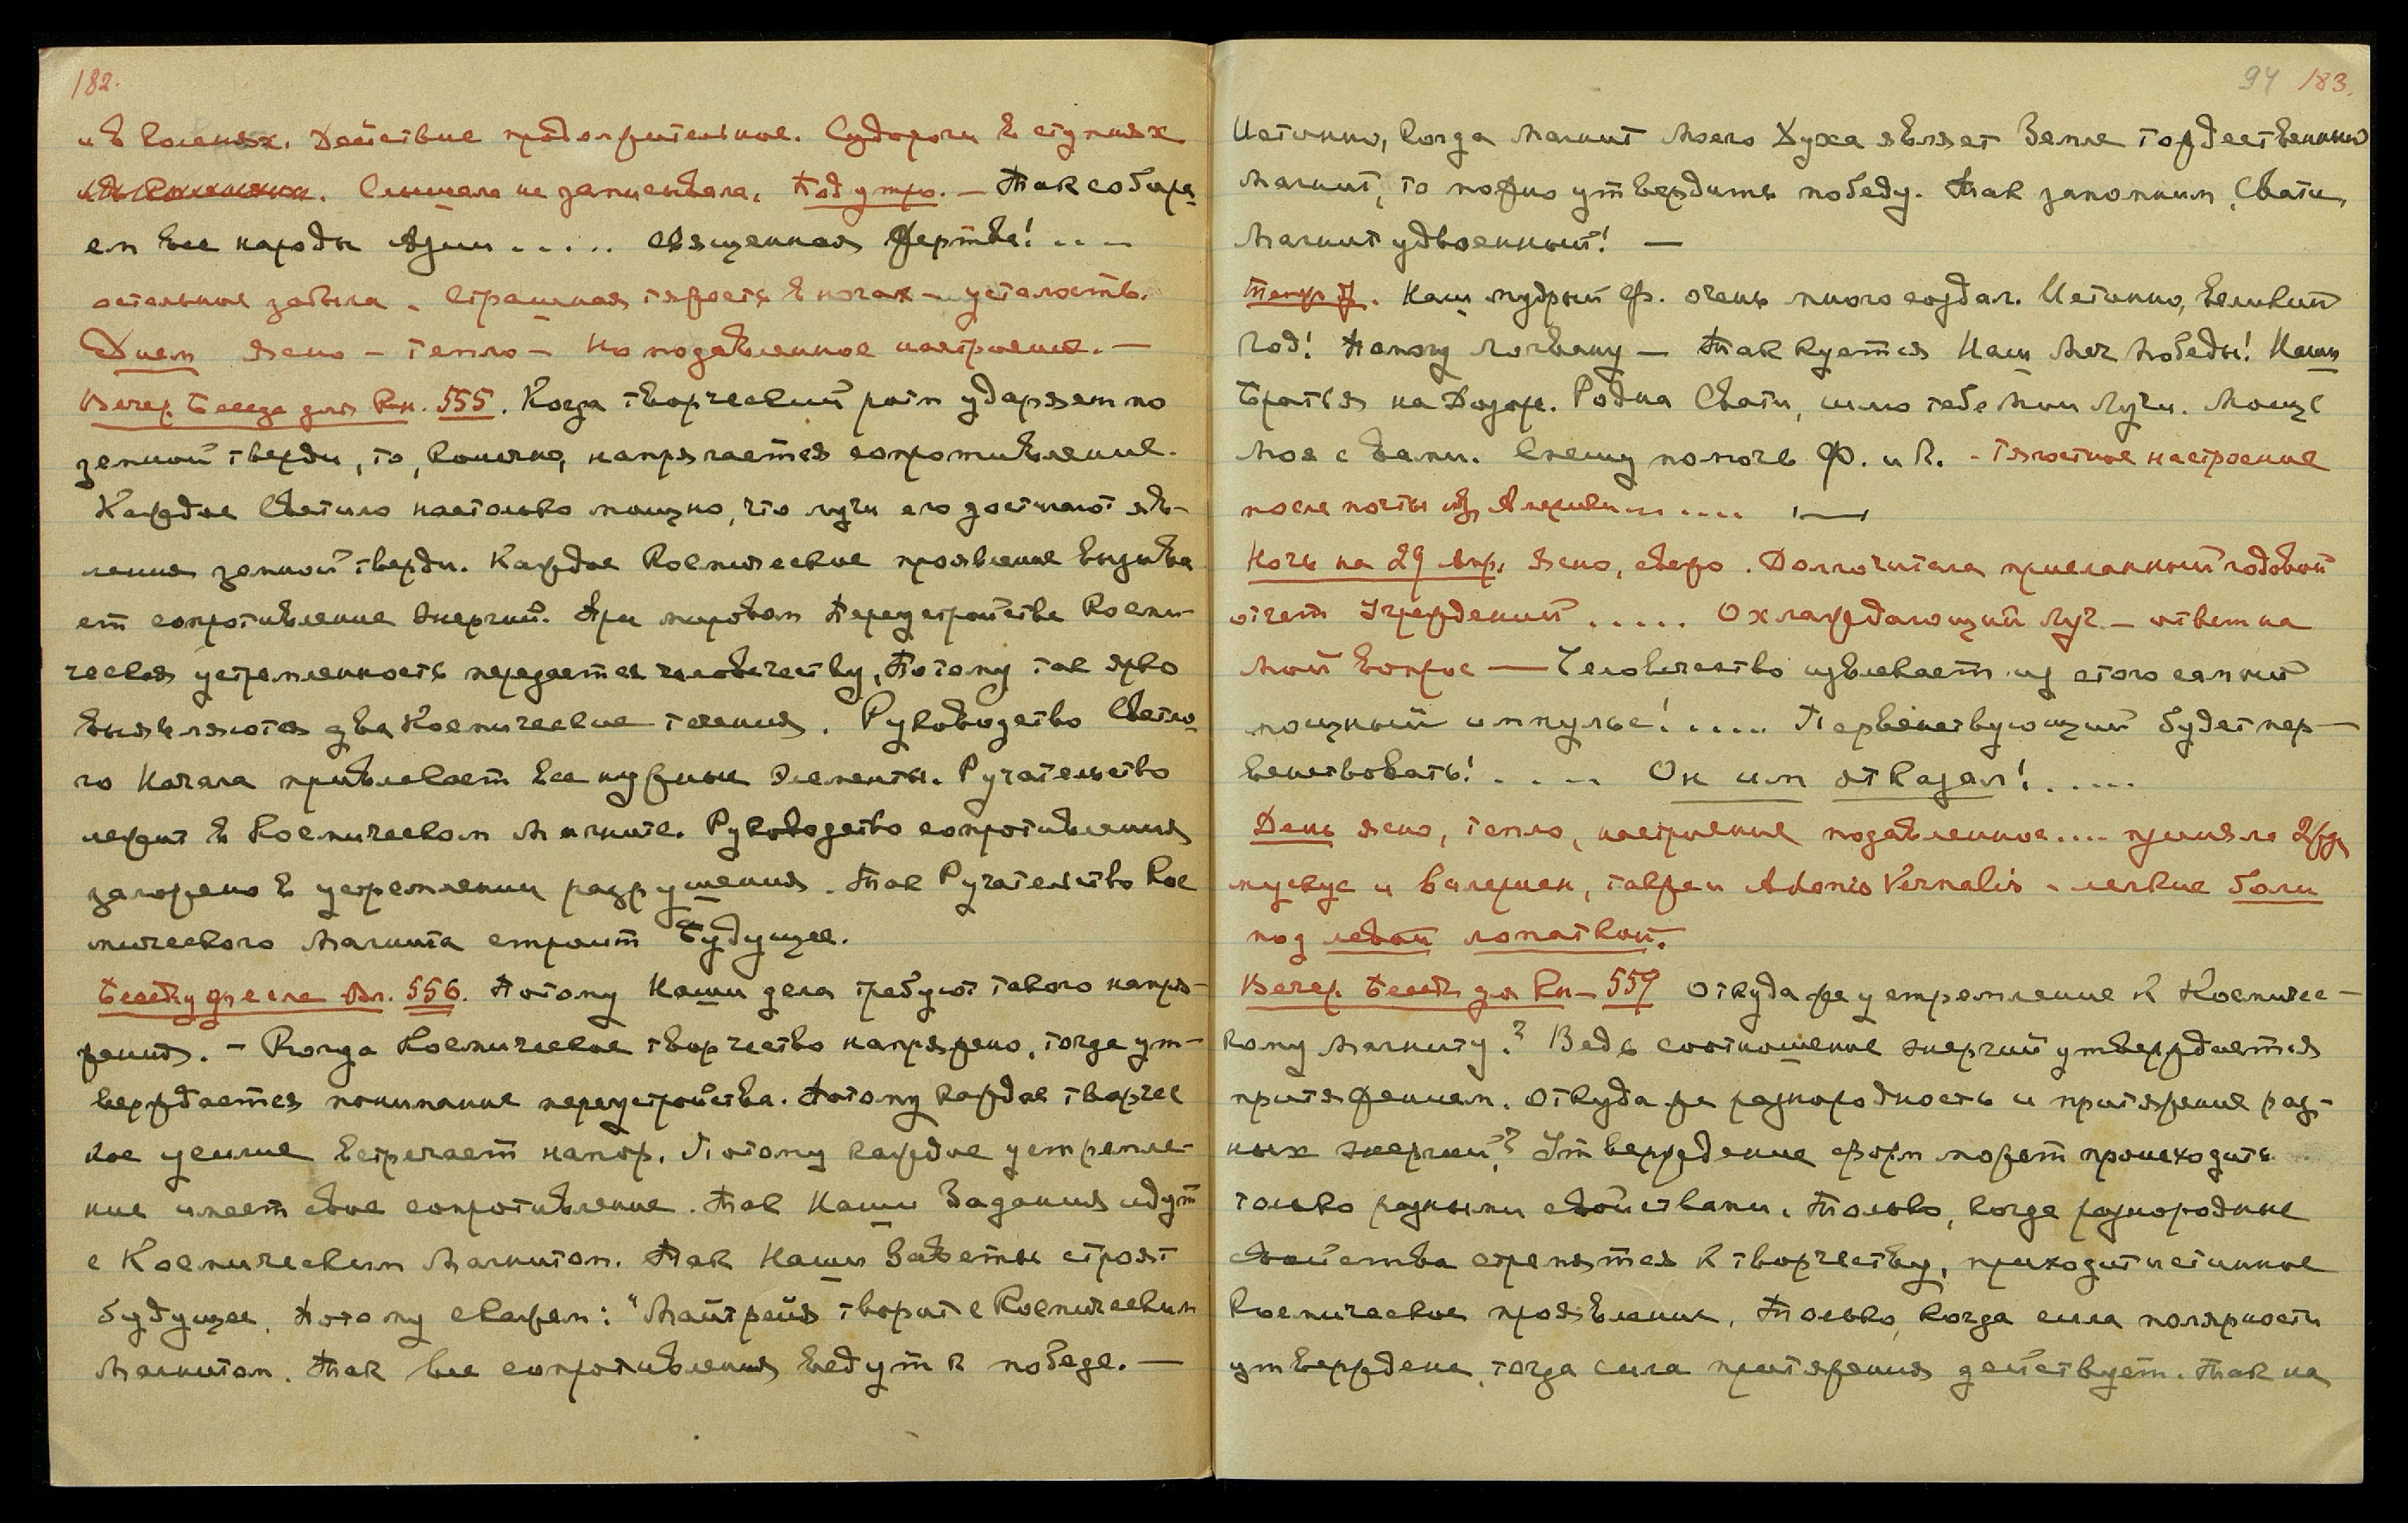 182.
и в коленях. Действие продолжительное. Судороги в ступнях
. Слышала не записывала. Под утро. — Так собира
ем все народы Азии ..... священная жертва! ....
остальное забыла - Страшная тяжесть в ногах - усталость.
Днем ясно - тепло - но подавленное настроение. —
Вечер. Беседа для Кн. 555. Когда творческий ритм ударяет по
земной тверди, то, конечно, напрягается сопротивление.
Каждое Светило настолько мощно, что лучи его достигают яв-
ления земной тверди. Каждое Космическое проявление вызыва
ет сопротивление энергий. При мировом Переустройстве Косми-
ческая устремленность передается человечеству, Потому так ярко
выявляются два Космические течения. Руководство Светло
го Начала привлекает все нужные Элементы. Ручательство
лежит в Космическом Магните. Руководство сопротивления
заложено в устремлении разрушения. Так Ручательство Кос
мического Магнита строит Будущее.
556. Потому Наши дела требуют такого напря-
жения. - Когда Космическое творчество напряжено, тогда ут-
верждается понимание переустройства. Потому каждое творчес
кое усилие встречает напор. Потому каждое устремле-
ние имеет свое сопротивление. Так Наши Задания идут
с Космическим Магнитом. Так Наши Заветы строят
будущее. Потому скажем: "Майтрейя творит с Космическим
Магнитом. Так все сопротивления ведут к победе. —
94 183.
Истинно, когда Магнит Моего Духа являет Земле тождественный
Магнит, то можно утвердить победу. Так запомним, Свати,
Магнит удвоенный! —
Наш мудрый Ф. очень много создал. Истинно, великий
год! Помогу Логвану — Так куется Наш Меч Победы! Наши
Братья на Дозоре. Родна Свати, шлю тебе Мои Лучи. Мощь
Моя с вами. Спешу помочь Ф. и Л. - Тягостное настроение
после почты из Америки .... —
Ночь на 29 Янр. Ясно, свежо. Долго читала присланный годовой
отчет Учреждений ..... Охлаждающий Луч - ответ на
мой вопрос — Человечество извлекает из этого самый
мощный импульс! ..... Первенствующий будет пер-
венствовать! .... Он им отказал! .....
День ясно, тепло, настроение подавленное.... приняла 2 рз
мускус и валериан, также Adonis Vernalis - легкие боли
под левой лопаткой.
Вечер. Беседа для Кн - 557 Откуда же устремление к Космичес-
кому Магниту? Ведь соотношение энергий утверждается
притяжением. Откуда же разнородность и притяжение раз-
ных энергий? Утверждение форм может происходить
только разными свойствами. Только, когда разнородные
свойства стремятся к творчеству, приходит истинное
Космическое проявление. Только, когда сила полярности
утверждена, тогда сила притяжения действует. Так на